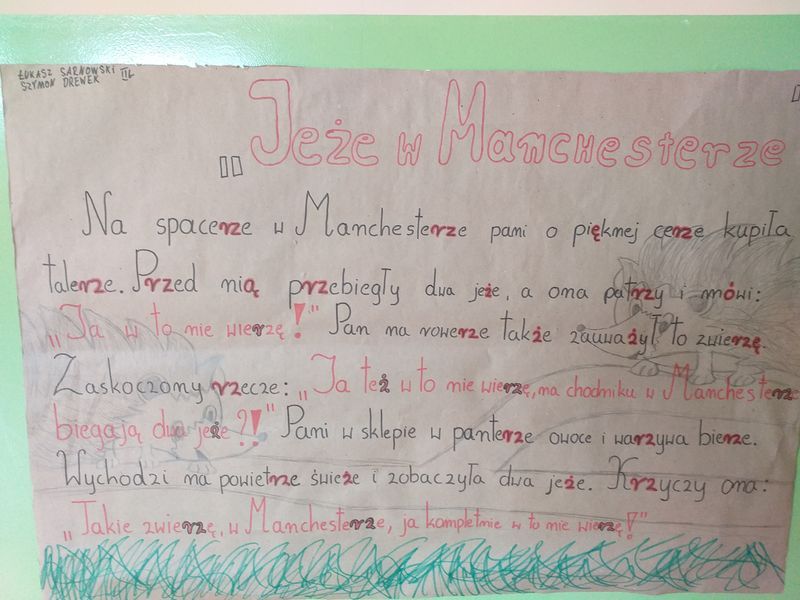 ŁUKASZ SARNOWSKI IIL
SZYMON DREWEK
"Jeże w Manchesterze
Na spacerze w Manchesterze pani o pięknej cerze kupiła
talerze. Przed nią przebiegły dwa jeże, a ona patrzy i mówi:
„Ja w to nie wierzę!" Pan na rowerze także zauważył to zwierzę.
Zaskoczony rzecze: „Ja też w to nie wierzę, na chodniku w Manchesterze
biegają dwa jeże?!" Pani w sklepie w panterze owoce i warzywa bierze.
Wychodzi na powietrze świeże i zobaczyła dwa jeże. Krzyczy ona:
„Jakie zwierzę, w Manchesterze, ja kompletnie w to nie wierzę!"